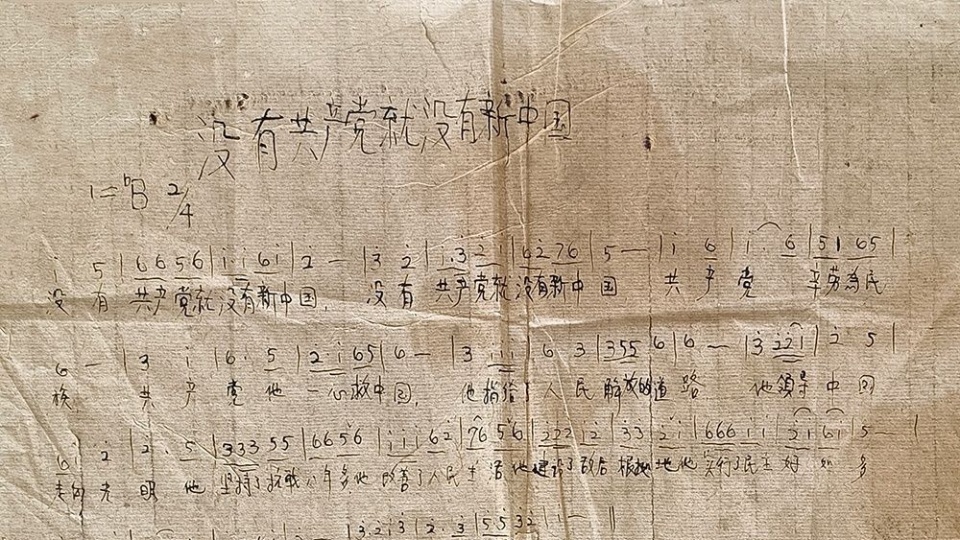 没有共产党就没有新中国
1=ᵇB 2/4
i 5 | 6 6 5 6 | i. i 6 i | 2 — | 3 2 | i. 3 2 i | 6 2 7 6 | 5 — | i 6 | i. 6 | 5 1 6 5 |
没有共产党就没有新中国. 没有共产党就没有新中国 共产党 辛劳为民
6 — | 3 i | 6. 5 | 2 i 6 5 | 6 — | 3 i i i | 6 3 | 3 5 5 6 | 6 — | 3 2 2 i | 2 5 |
族 共产党他一心救中国. 他指给了人民解放的道路 他领导中国
6 2 | 2. 5 | 3 3 3 5 5 | 6 6 5 6 | i i i 6 2 | 7 6 5 6 | 2 2 2 2 | 3 3 2 i | 6 6 6 i i | 2 i 6 i | 5 — |
走向光明 他坚持了抗战八年多他改善了人民生活他建设了敌后根据地他实行了民主好如多
| 3. 2 i 3 | 2. 3 | 5 5 3 2 | i — ||